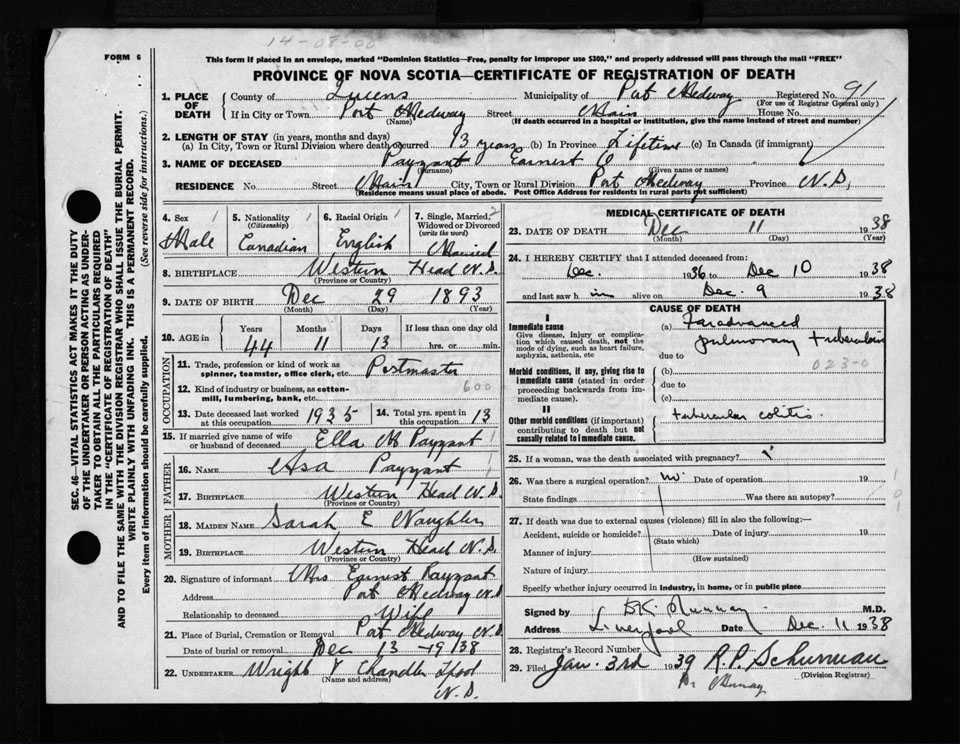 14-08-00
FORM 6
This form if placed in an envelope, marked "Dominion Statistics—Free, penalty for improper use $300," and properly addressed will pass through the mail "FREE"
PROVINCE OF NOVA SCOTIA—CERTIFICATE OF REGISTRATION OF DEATH
1. PLACE OF DEATH County of Queens Municipality of Port Medway Registered No. 91
(For use of Registrar General only)
If in City or Town Port Medway Street Main House No.
(Name) (If death occurred in a hospital or institution, give the name instead of street and number)
2. LENGTH OF STAY (in years, months and days)
(a) In City, Town or Rural Division where death occurred 13 years (b) In Province Lifetime (c) In Canada (if immigrant)
3. NAME OF DECEASED Payzant Earnest C
(Surname) (Given name or names)
RESIDENCE No. Street Main City, Town or Rural Division Port Medway Province N.S,
(Residence means usual place of abode. Post Office Address for residents in rural parts not sufficient)
4. Sex 5. Nationality (Citizenship) 6. Racial Origin 7. Single, Married, Widowed or Divorced (write the word)
Male Canadian English Married
8. BIRTHPLACE Western Head N.S.
(Province or Country)
9. DATE OF BIRTH Dec 29 1893
(Month) (Day) (Year)
10. AGE in Years Months Days If less than one day old
44 11 13 hrs. or min.
OCCUPATION
11. Trade, profession or kind of work as spinner, teamster, office clerk, etc. Postmaster
12. Kind of industry or business, as cotton-mill, lumbering, bank, etc. 600
13. Date deceased last worked at this occupation 1935 14. Total yrs. spent in 13
15. If married give name of wife or husband of deceased Ella M Payzant
FATHER
16. NAME Asa Payzant
17. BIRTHPLACE Western Head N.S.
(Province or Country)
MOTHER
18. MAIDEN NAME Sarah E Naughler
19. BIRTHPLACE Western Head N.S.
(Province or Country)
20. Signature of informant Mrs Earnest Payzant
Address Port Medway N.S
Relationship to deceased Wife
21. Place of Burial, Cremation or Removal Port Medway N.S
Date of burial or removal Dec 13 - 1938
22. UNDERTAKER Wright & Chandler Lpool
(Name and address) N.S.
MEDICAL CERTIFICATE OF DEATH
23. DATE OF DEATH Dec 11 1938
(Month) (Day) (Year)
24. I HEREBY CERTIFY that I attended deceased from:
Dec. 1936 to Dec 10 1938
and last saw him alive on Dec. 9 1938
CAUSE OF DEATH
I
Immediate cause (a) Far advanced
Give disease, injury or complication which caused death, not the mode of dying, such as heart failure, asphyxia, asthenia, etc pulmonary tuberculosis
due to
023-0
Morbid conditions, if any, giving rise to immediate cause (stated in order proceeding backwards from immediate cause). (b)
due to
(c)
II
Other morbid conditions (if important) contributing to death but not causally related to immediate cause. tubercular colitis.
25. If a woman, was the death associated with pregnancy?
26. Was there a surgical operation? no Date of operation 19
State findings Was there an autopsy?
27. If death was due to external causes (violence) fill in also the following:—
Accident, suicide or homicide? Date of injury 19
(State which)
Manner of injury
(How sustained)
Nature of injury
Specify whether injury occurred in industry, in home, or in public place
Signed by D.K. Murray M.D.
Address Liverpool Date Dec. 11 1938
28. Registrar's Record Number
29. Filed Jan. 3rd 1939 R.P. Schurman
(Division Registrar)
Dr Murray
SEC. 46—VITAL STATISTICS ACT MAKES IT THE DUTY
OF THE UNDERTAKER OR PERSON ACTING AS UNDER-
TAKER TO OBTAIN ALL THE PARTICULARS REQUIRED
IN THE "CERTIFICATE OF REGISTRATION OF DEATH"
AND TO FILE THE SAME WITH THE DIVISION REGISTRAR WHO SHALL ISSUE THE BURIAL PERMIT.
WRITE PLAINLY WITH UNFADING INK. THIS IS A PERMANENT RECORD.
Every item of information should be carefully supplied. (See reverse side for instructions.)